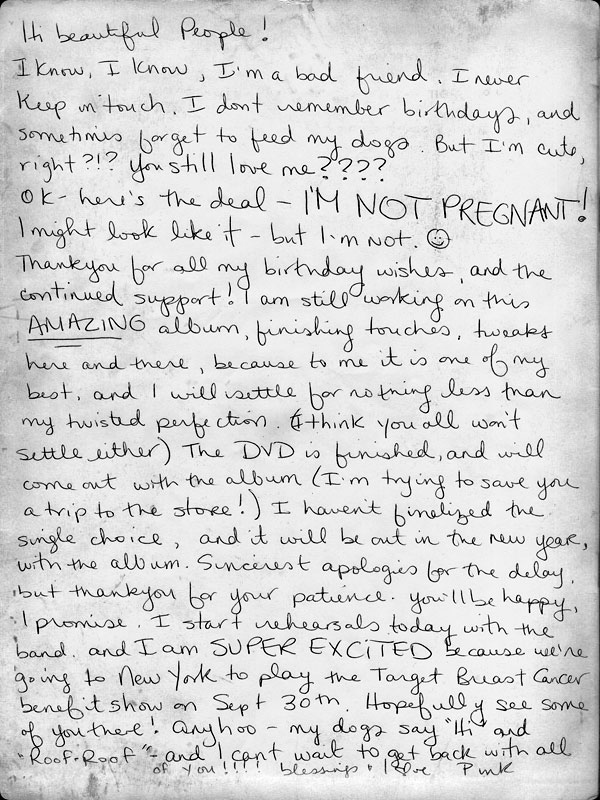 Hi beautiful People!
I know, I know, I'm a bad friend. I never
keep in touch. I dont remember birthdays, and
sometimes forget to feed my dogs. But I'm cute,
right?!? you still love me????
OK - here's the deal - I'M NOT PREGNANT!
I might look like it - but I'm not. ☺
Thankyou for all my birthday wishes, and the
continued support! I am still working on this
AMAZING album, finishing touches, tweaks
here and there, because to me it is one of my
best, and I will settle for nothing less than
my twisted perfection. (I think you all won't
settle either) The DVD is finished, and will
come out with the album (I'm trying to save you
a trip to the store!) I haven't finelized the
single choice, and it will be out in the new year,
with the album. Sincerest apologies for the delay,
but thankyou for your patience. you'll be happy,
I promise. I start rehearsals today with the
band. and I am SUPER EXCITED because we're
going to New York to play the Target Breast Cancer
benefit show on Sept 30th. Hopefully see some
of you there! Anyhoo - my dogs say "Hi" and
"Roof-Roof" - and I cant wait to get back with all
of you!!!! blessings + love Pink